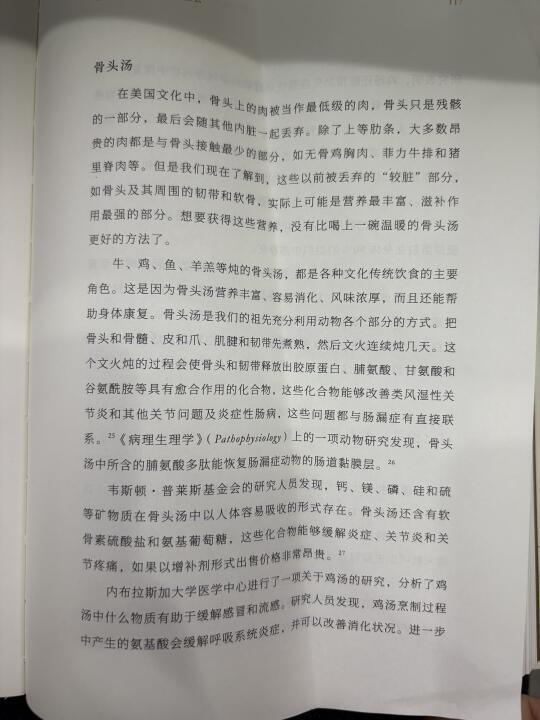 骨头汤
在美国文化中，骨头上的肉被当作最低级的肉，骨头只是残骸
的一部分，最后会随其他内脏一起丢弃。除了上等肋条，大多数昂
贵的肉都是与骨头接触最少的部分，如无骨鸡胸肉、菲力牛排和猪
里脊肉等。但是我们现在了解到，这些以前被丢弃的“较脏”部分，
如骨头及其周围的韧带和软骨，实际上可能是营养最丰富、滋补作
用最强的部分。想要获得这些营养，没有比喝上一碗温暖的骨头汤
更好的方法了。
牛、鸡、鱼、羊羔等炖的骨头汤，都是各种文化传统饮食的主要
角色。这是因为骨头汤营养丰富、容易消化、风味浓厚，而且还能帮
助身体康复。骨头汤是我们的祖先充分利用动物各个部分的方式。把
骨头和骨髓、皮和爪、肌腱和韧带先煮熟，然后文火连续炖几天。这
个文火炖的过程会使骨头和韧带释放出胶原蛋白、脯氨酸、甘氨酸和
谷氨酰胺等具有愈合作用的化合物，这些化合物能够改善类风湿性关
节炎和其他关节问题及炎症性肠病，这些问题都与肠漏症有直接联
系。25《病理生理学》（Pathophysiology）上的一项动物研究发现，骨头
汤中所含的脯氨酸多肽能恢复肠漏症动物的肠道黏膜层。26
韦斯顿·普莱斯基金会的研究人员发现，钙、镁、磷、硅和硫
等矿物质在骨头汤中以人体容易吸收的形式存在。骨头汤还含有软
骨素硫酸盐和氨基葡萄糖，这些化合物能够缓解炎症、关节炎和关
节疼痛，如果以增补剂形式出售价格非常昂贵。27
内布拉斯加大学医学中心进行了一项关于鸡汤的研究，分析了鸡
汤中什么物质有助于缓解感冒和流感。研究人员发现，鸡汤烹制过程
中产生的氨基酸会缓解呼吸系统炎症，并可以改善消化状况。进一步